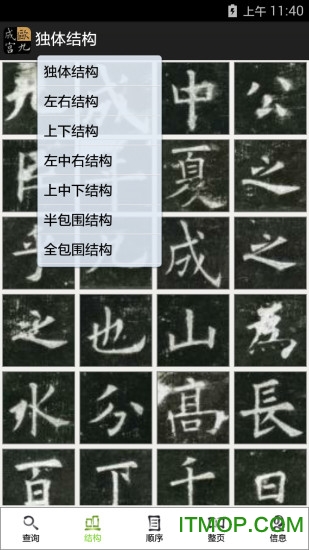 上午 11:40
成宫 歐九 独体结构
独体结构
左右结构
上下结构
左中右结构
上中下结构
半包围结构
全包围结构
九 成 中 公
臣 夏 之
乎 九 成 之
之 也 山 為
水 分 高 長
百 下 千 日
查询 结构 顺序 整页 信息
ITMOP.COM